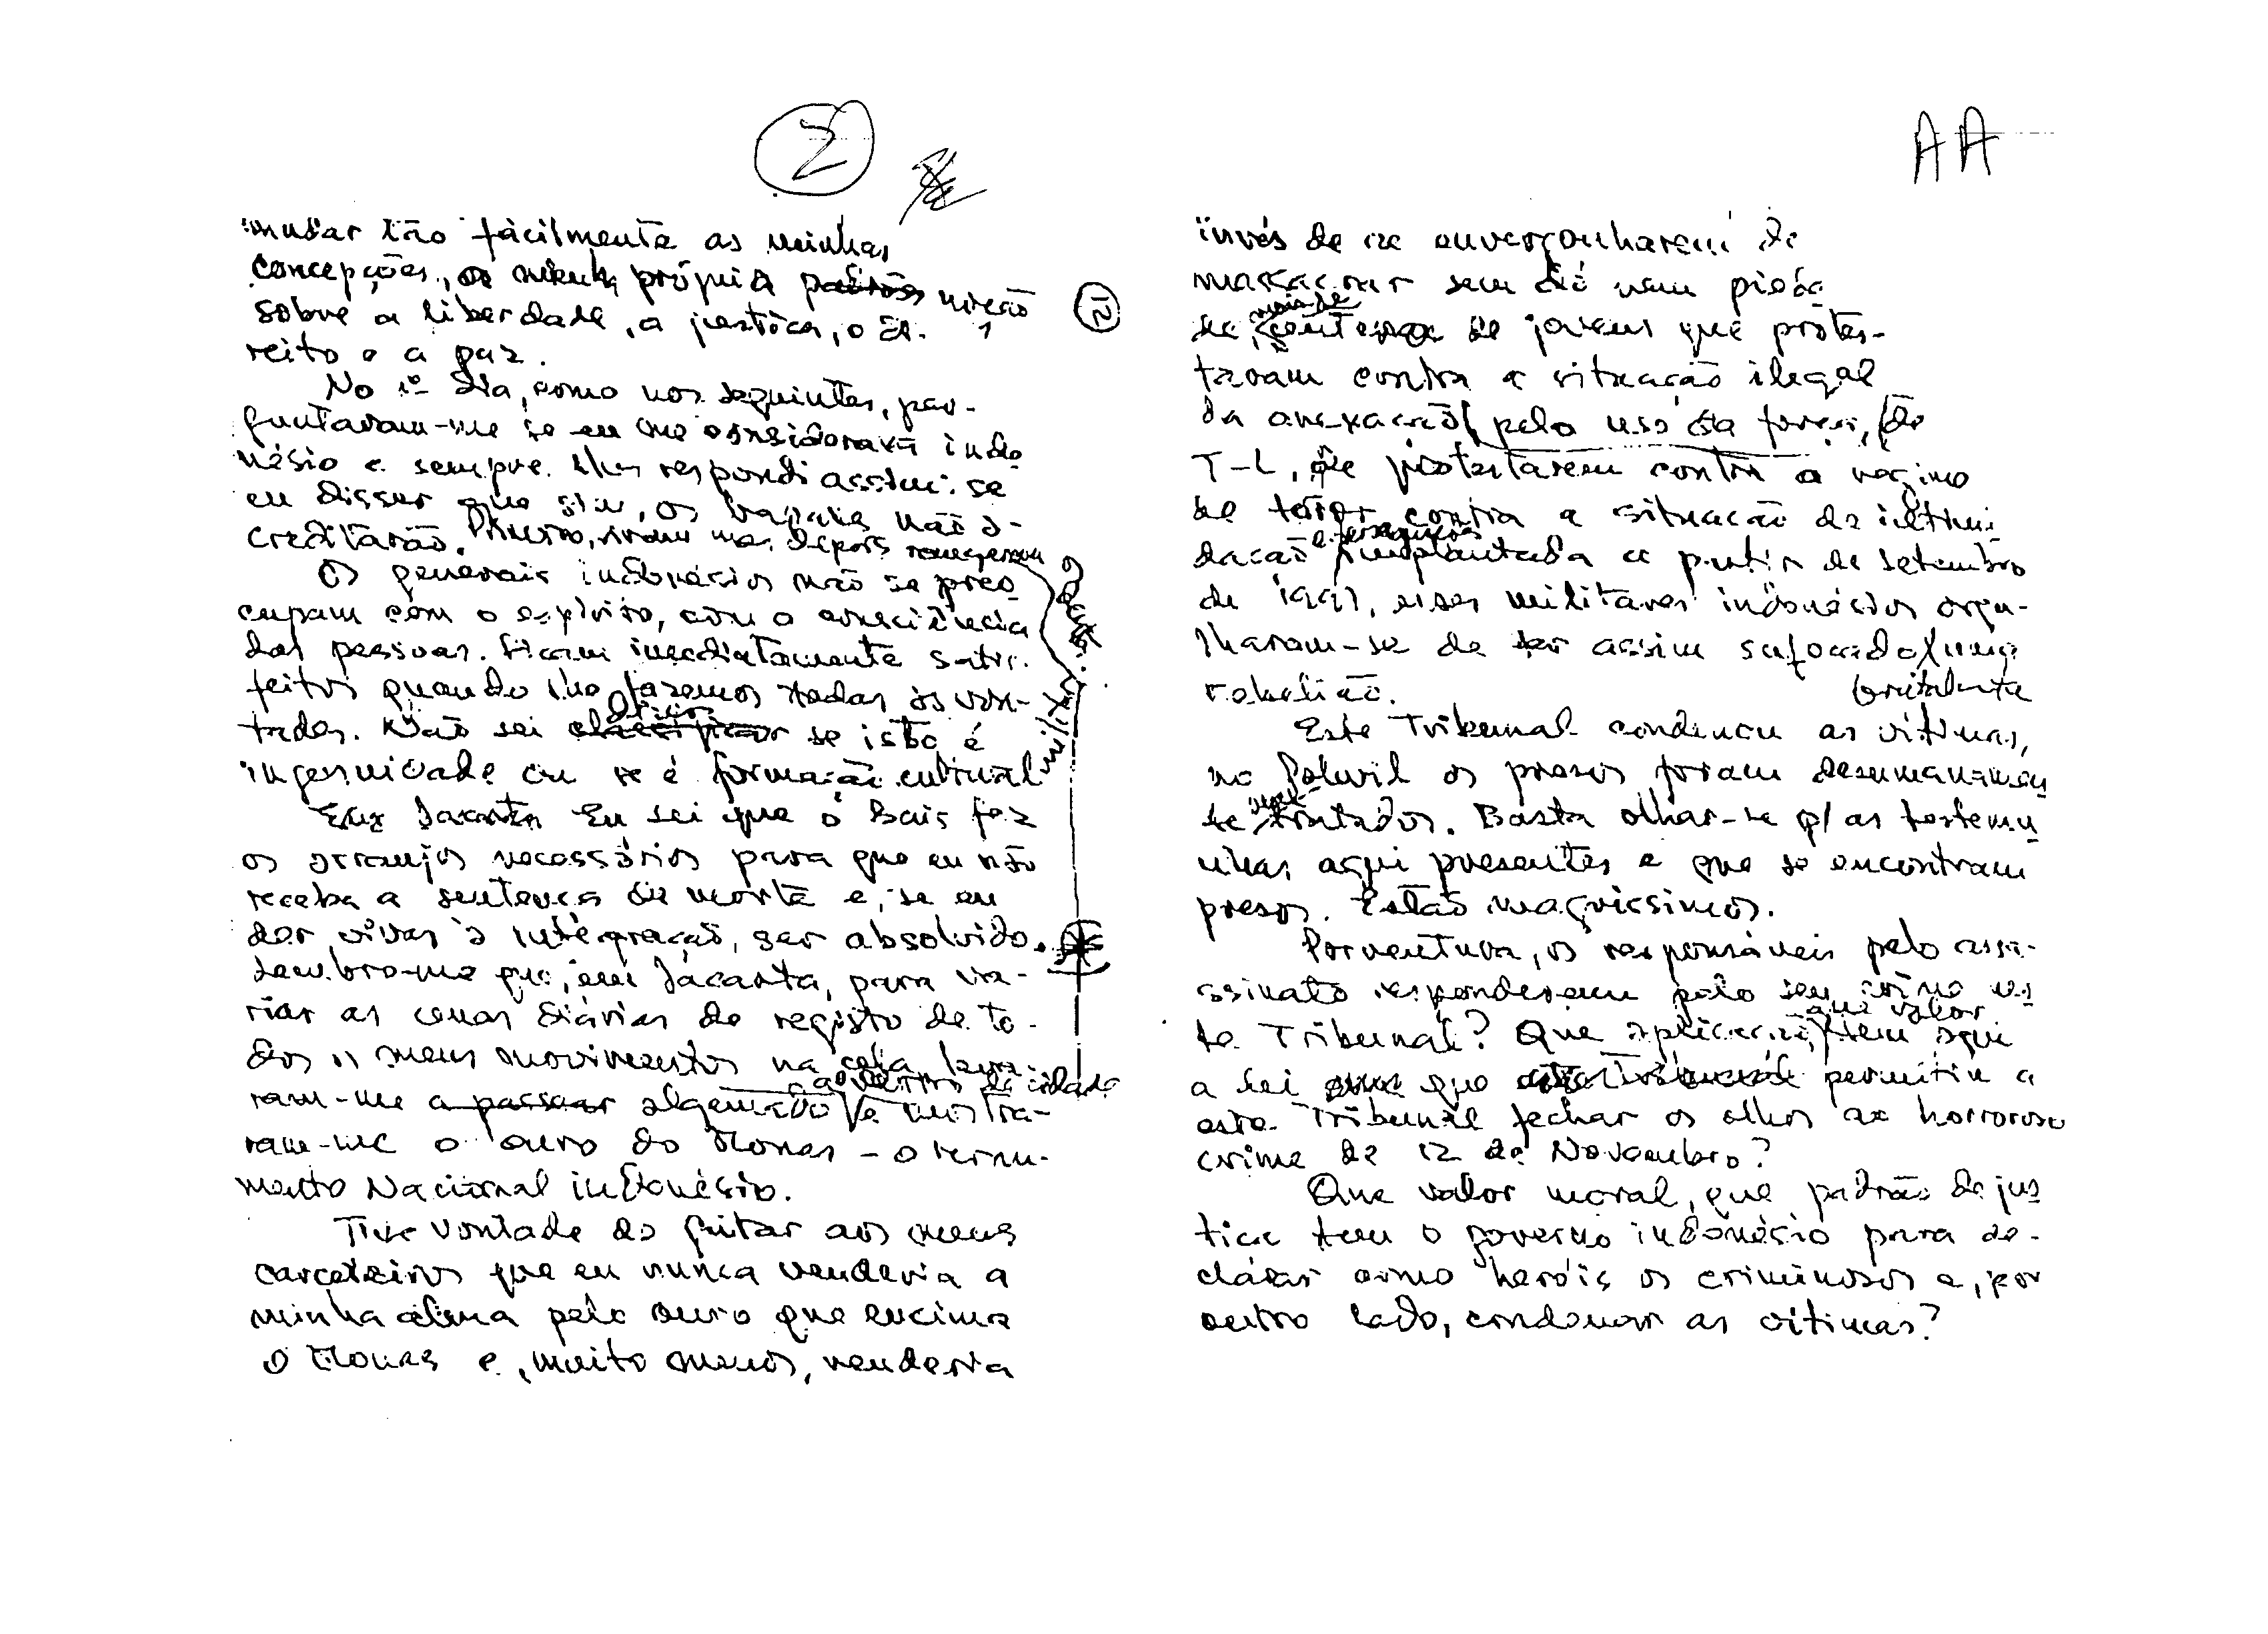 2
mudar tão fàcilmente as minhas
concepções, a minha própria visão
sobre a liberdade, a justiça, o di-
reito e a paz.
12
No 1º dia, como nos seguintes, per-
guntaram-me se eu me considerava indo
nésio e sempre lhes respondi assim: se
eu disser que sim, os bapaks não a-
creditarão. Primeiro, riram mas depois
Os generais indonésios não se preo
cupam com o espírito, com a consciência
das pessoas. Ficam imediatamente satis-
feitos quando lhe fazemos todas as von-
tades. Não sei se isto é
ingenuidade ou se é formação cultural
militar
Eu sei que o Bais fez
os arranjos necessários para que eu não
receba a sentença de morte e, se eu
der vivas à integração, ser absolvido.
Lembro-me que, em Jacarta, para va-
riar as cenas diárias de registo de to-
dos os meus movimentos na cela, leva-
ram-me a passear algemado ao centro da cidade e mostra-
ram-me o ouro do Monas - o Monu-
mento Nacional indonésio.
Tive vontade de gritar aos meus
carcereiros que eu nunca venderia a
minha alma pelo ouro que encima
o Monas e, muito menos, venderia
AA
invés de se envergonharem de
massacrar sem dó nem pieda
de, mais de centena de jovens que protes-
tavam contra a situação ilegal
da anexação, pelo uso da força, de
T-L, de protestarem contra o regime
de terror contra a situação de intimi
dação e perseguições implantada a partir de setembro
de 1991, esses militares indonésios orgu-
lharam-se de ter assim sufocado uma
rebelião. brutalmente
Este Tribunal condenou as vítimas,
na Polwil os presos foram desumanamen
te tratados. Basta olhar-se p/ as testemu
nhas aqui presentes e que se encontram
presos. Estão magríssimos.
Porventura, os responsáveis pelo assa-
ssinato responderam pelo seu crime nes
te Tribunal? Que aplicação, que valor tem aqui
a lei que permitiu a
este Tribunal fechar os olhos ao horroroso
crime de 12 de Novembro?
Que valor moral, que padrão de jus
tiça tem o governo indonésio para de-
clarar como heróis os criminosos e, por
outro lado, condenar as vítimas?